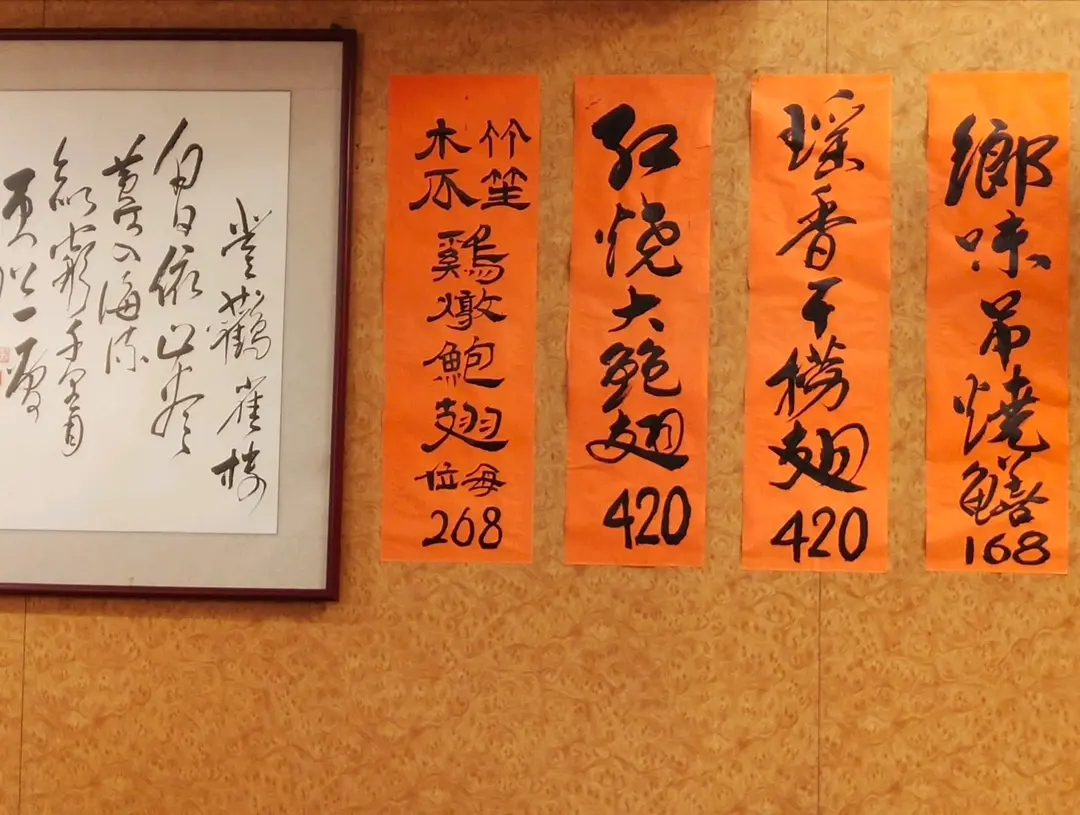 鄉味吊燒鱔
168
瑶香干捞翅
420
红烧大鲍翅
420
竹笙
木瓜
鷄燉鮑翅
每位
268
登鸛雀樓
白日依山尽
黄河入海流
欲窮千里目
更上一層